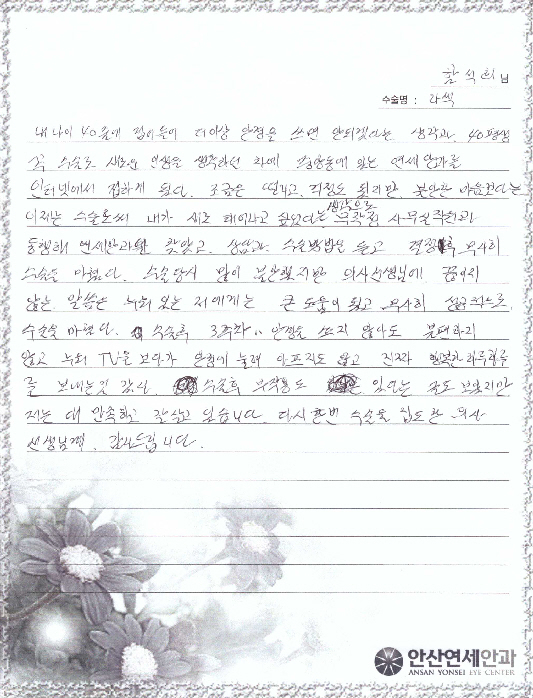 황석희 님
수술명 : 라섹
내 나이 40줄에 접어들어 더이상 안경을 쓰면 안되겠다는 생각과, 40평생
꼭 수술로 새로운 인생을 생각하던 차에 중앙동에 있는 연세안과를
인터넷에서 접하게 됐다. 조금은 떨리고, 걱정도 됐지만, 불안한 마음보다는
이제는 수술로써 내가 새로 태어나고 싶었다는 생각으로 무작정 사무실직원과
동행해 연세안과를 찾았고, 상담과 수술방법을 듣고 결정후 무사히
수술을 마쳤다. 수술당시 많이 불안했지만 의사선생님에 끊이지
않는 말씀은 누워 있는 저에게는 큰 도움이 됐고 무사히 성공적으로
수술을 마쳤다. 수술후 3주차.. 안경을 쓰지 않아도 불편하지
않고 누워 TV을 보다가 안경에 눌려 아프지도 않고 진짜 행복한 하루하루
를 보내는것 같다. 수술후 부작용도 있다는 글도 보았지만
저는 대 만족하고 잘살고 있습니다. 다시 한번 수술을 집도한 의사
선생님께 감사드립니다.
안산연세안과
ANSAN YONSEI EYE CENTER